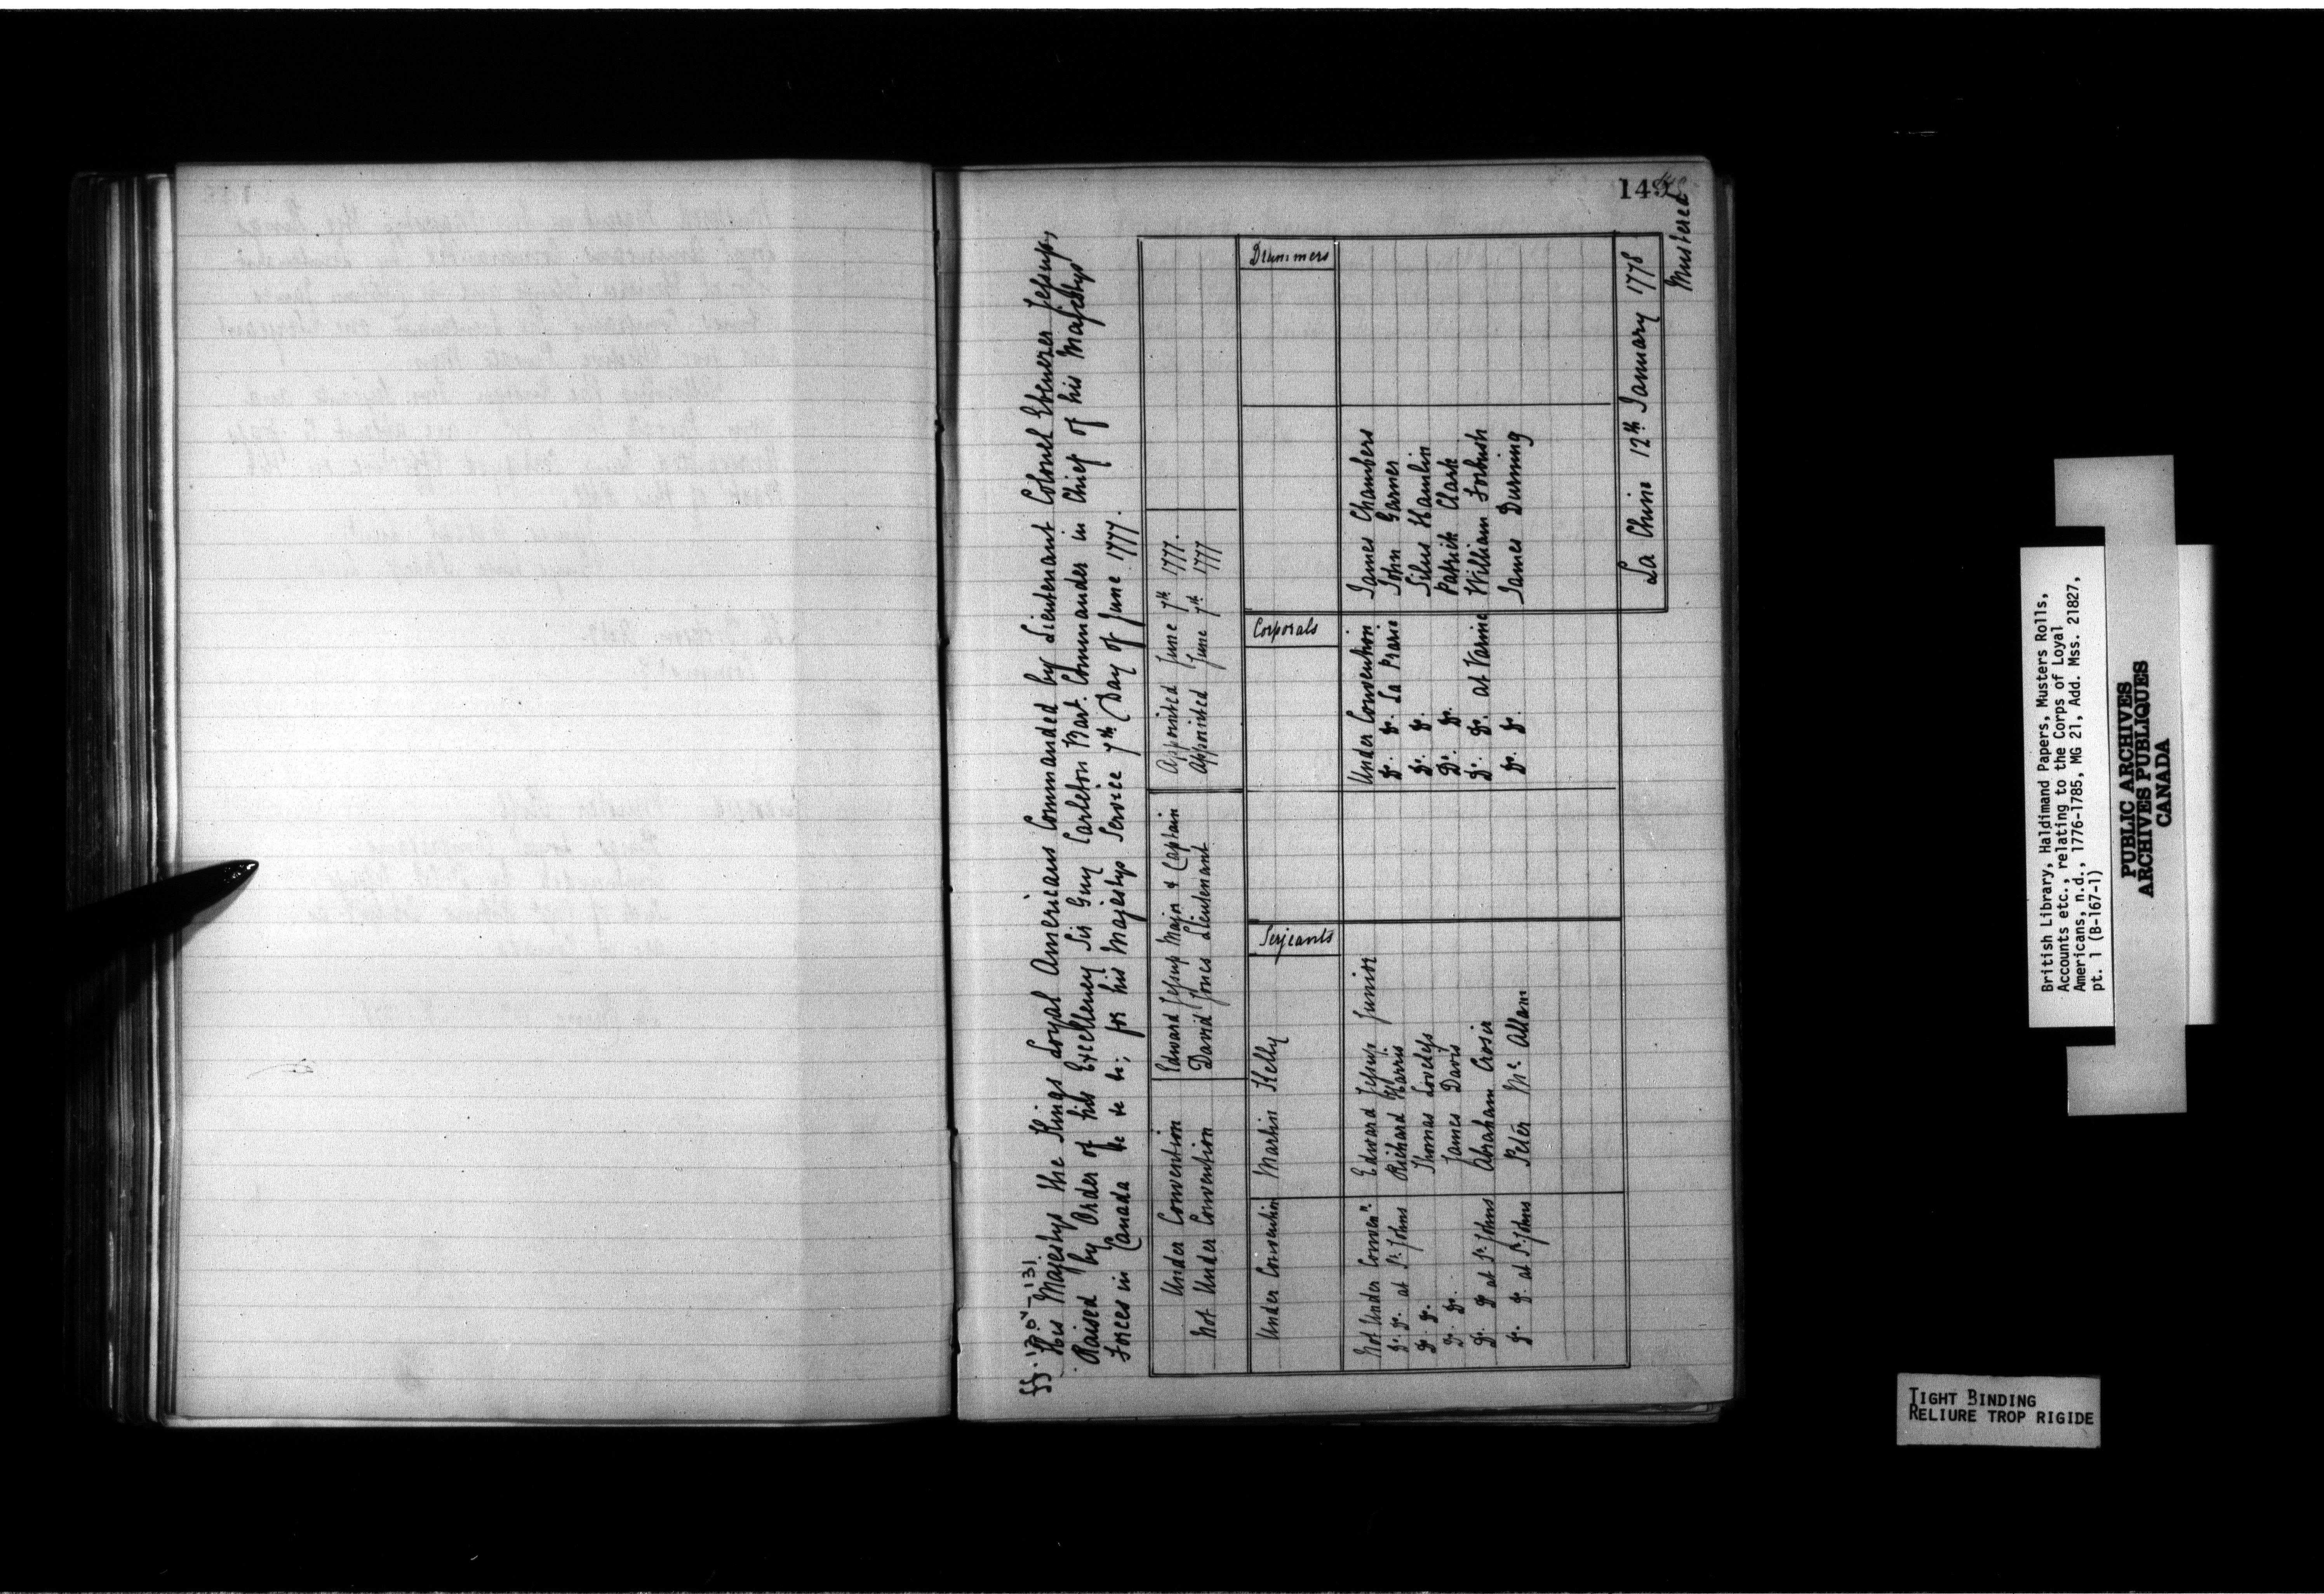 149
ff. 130v-131
His Majestys the Kings Loyal Americans Commanded by Lieutenant Colonel Ebenezer Jessup,
Raised by Order of his Excellency Sir Guy Carleton Bart. Commander in Chief of his Majestys
Forces in Canada &c &c &c; for his Majestys Service 7th Day of June 1777.
Under Convention Edward Jessup Major & Captain Appointed June 7th 1777.
Not Under Convention David Jones Lieutenant Appointed June 7th 1777
Serjeants Corporals Drummers
Under Convention Martin Kelly
Not Under Conven.n Edward Jessup Junior Under Convention James Chambers
Do. Do. at St. Johns Richard Harris Do. Do. La Prarie John Garner
Do. Do. Thomas Loveless Do. Do. Silus Hamlin
Do. Do. James Davis Do. Do. Patrick Clark
Do. Do at St. Johns Abraham Crosier Do. Do. at Varine William Forbush
Do. Do. at St. Johns Peter Mc Allam Do. Do. James Durning
La Chine 12th January 1778
Mustered
British Library, Haldimand Papers, Musters Rolls,
Accounts etc., relating to the Corps of Loyal
Americans, n.d., 1776-1785, MG 21, Add. Mss. 21827,
pt. 1 (B-167-1)
PUBLIC ARCHIVES
ARCHIVES PUBLIQUES
CANADA
TIGHT BINDING
RELIURE TROP RIGIDE